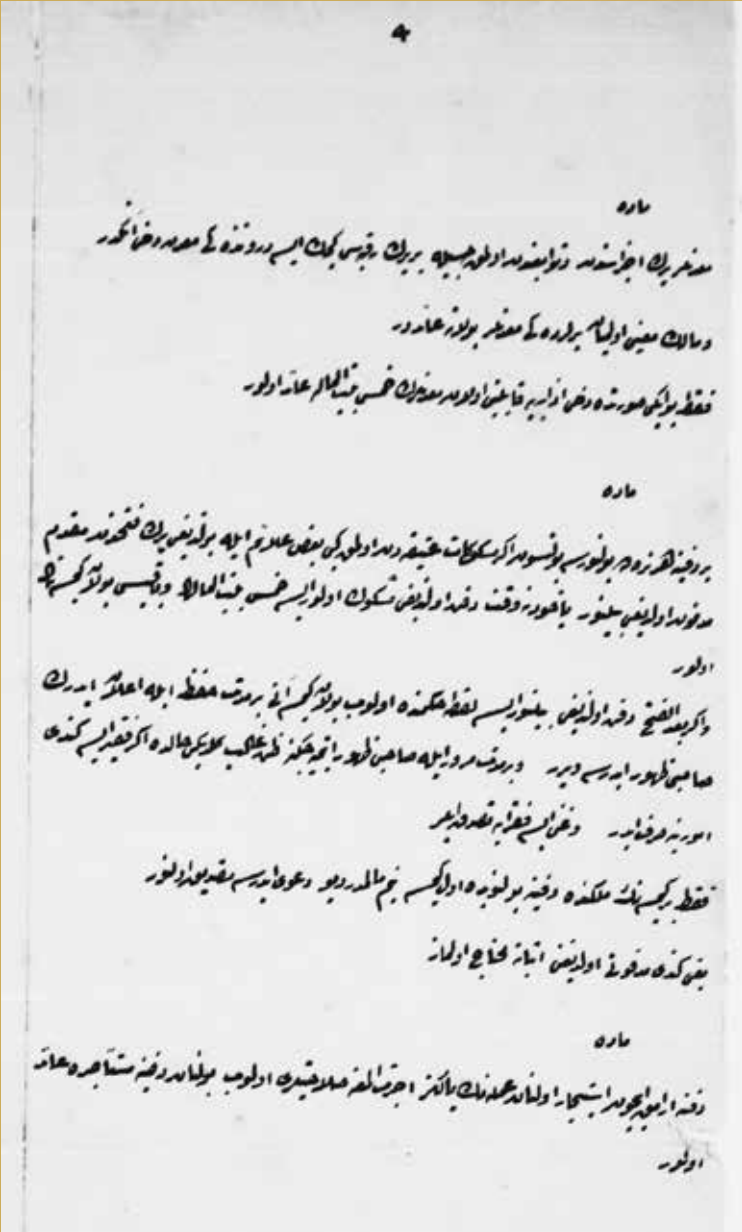 ماده
معدنلر يرك اجزاسندن و توابعندن اولمق حسبيله بر يرك رقبه‌سی كيمك ايسه درونده‌كی معدن دخی آنكدر
و مالك معينی اوليان يرلرده‌كی معدنلر بولانه عائددر
فقط بو ايكی صورتده دخی اذابه‌يه قابليتی اولان معدنلرك خمسی بيت الماله عائد اولور
ماده
بر دفينه هر نرده بولنورسه بولنسون اگر مسكوكات عتيقه‌دن اولمق كبی بعض علائم ايله بولنديغی يرك فتحندن مقدم
مدفون اولديغی بيلنور ياخود نه وقت دفن اولنديغی مشكوك اولور ايسه خمسی بيت المالك و باقيسی بولان كيمسه‌نك
اولور
و اگر بعد الفتح دفن اولنديغی بيلنور ايسه لقطه حكمنده اولوب بولان كيمسه آنی بر مدت حفظ ايله اعلان ايدرك
صاحبی ظهور ايدرسه ويرر و بر مدت مرور ايله صاحبی ظهور ايتميه‌جكنه ظن غالب كلديكی حالده اگر فقير ايسه كندی
امورينه صرف ايدر و غنی ايسه فقرايه تصدق ايلر
فقط بر كيمسه‌نك ملكنده دفينه بولنوبده اول كيمسه بنم مالمدر ديو دعوی ايدرسه تصديق اولنور
يعنی كندی مدفونی اولديغنی اثباته محتاج اولماز
ماده
دفينه ارامق ايچون استيجار اولنان عمله‌نك يالكز اجرت المغه صلاحيتلری اولوب بولنان دفينه مستأجره عائد
اولور